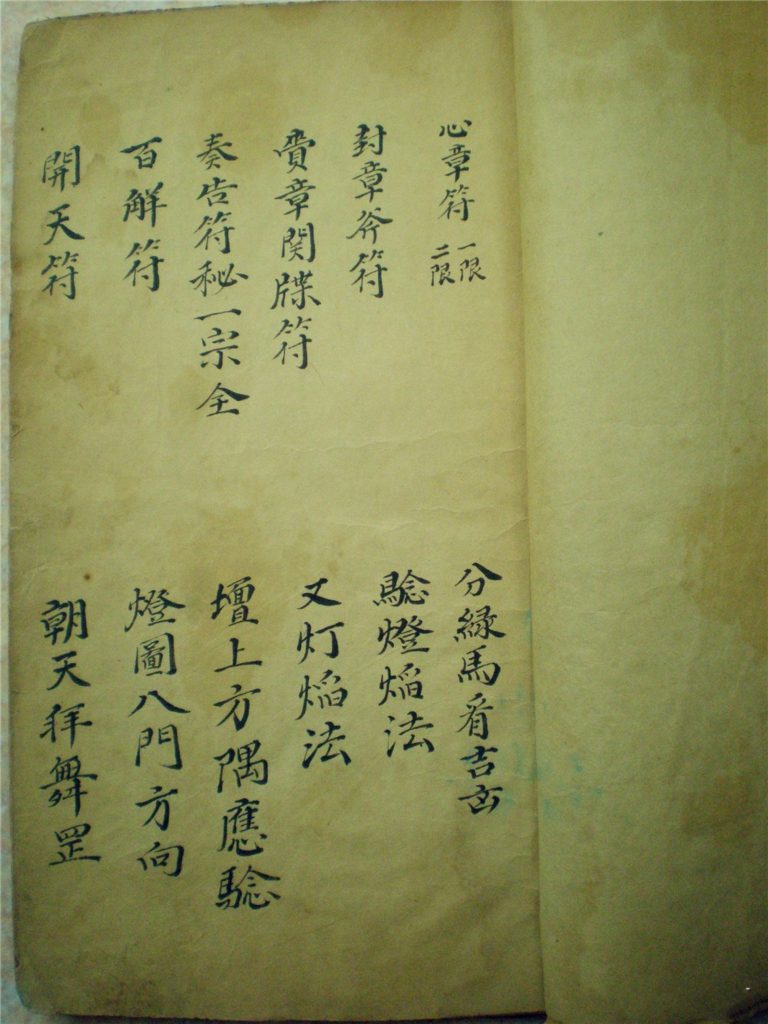 心章符 一限 二限
封章斧符
賫章関牒符
奏告符秘一宗全
百解符
開天符
分緣馬看吉凶
騐燈焰法
又灯焰法
壇上方隅應騐
燈圖八門方向
朝天拜舞罡